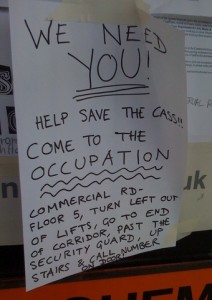 WE NEED
YOU!
HELP SAVE THE CASS!!
COME TO THE
OCCUPATION
COMMERCIAL RD-
FLOOR 5, TURN LEFT OUT
OF LIFTS, GO TO END
OF CORRIDOR, PAST THE
SECURITY GUARD, UP
STAIRS & CALL NUMBER
ON DOOR